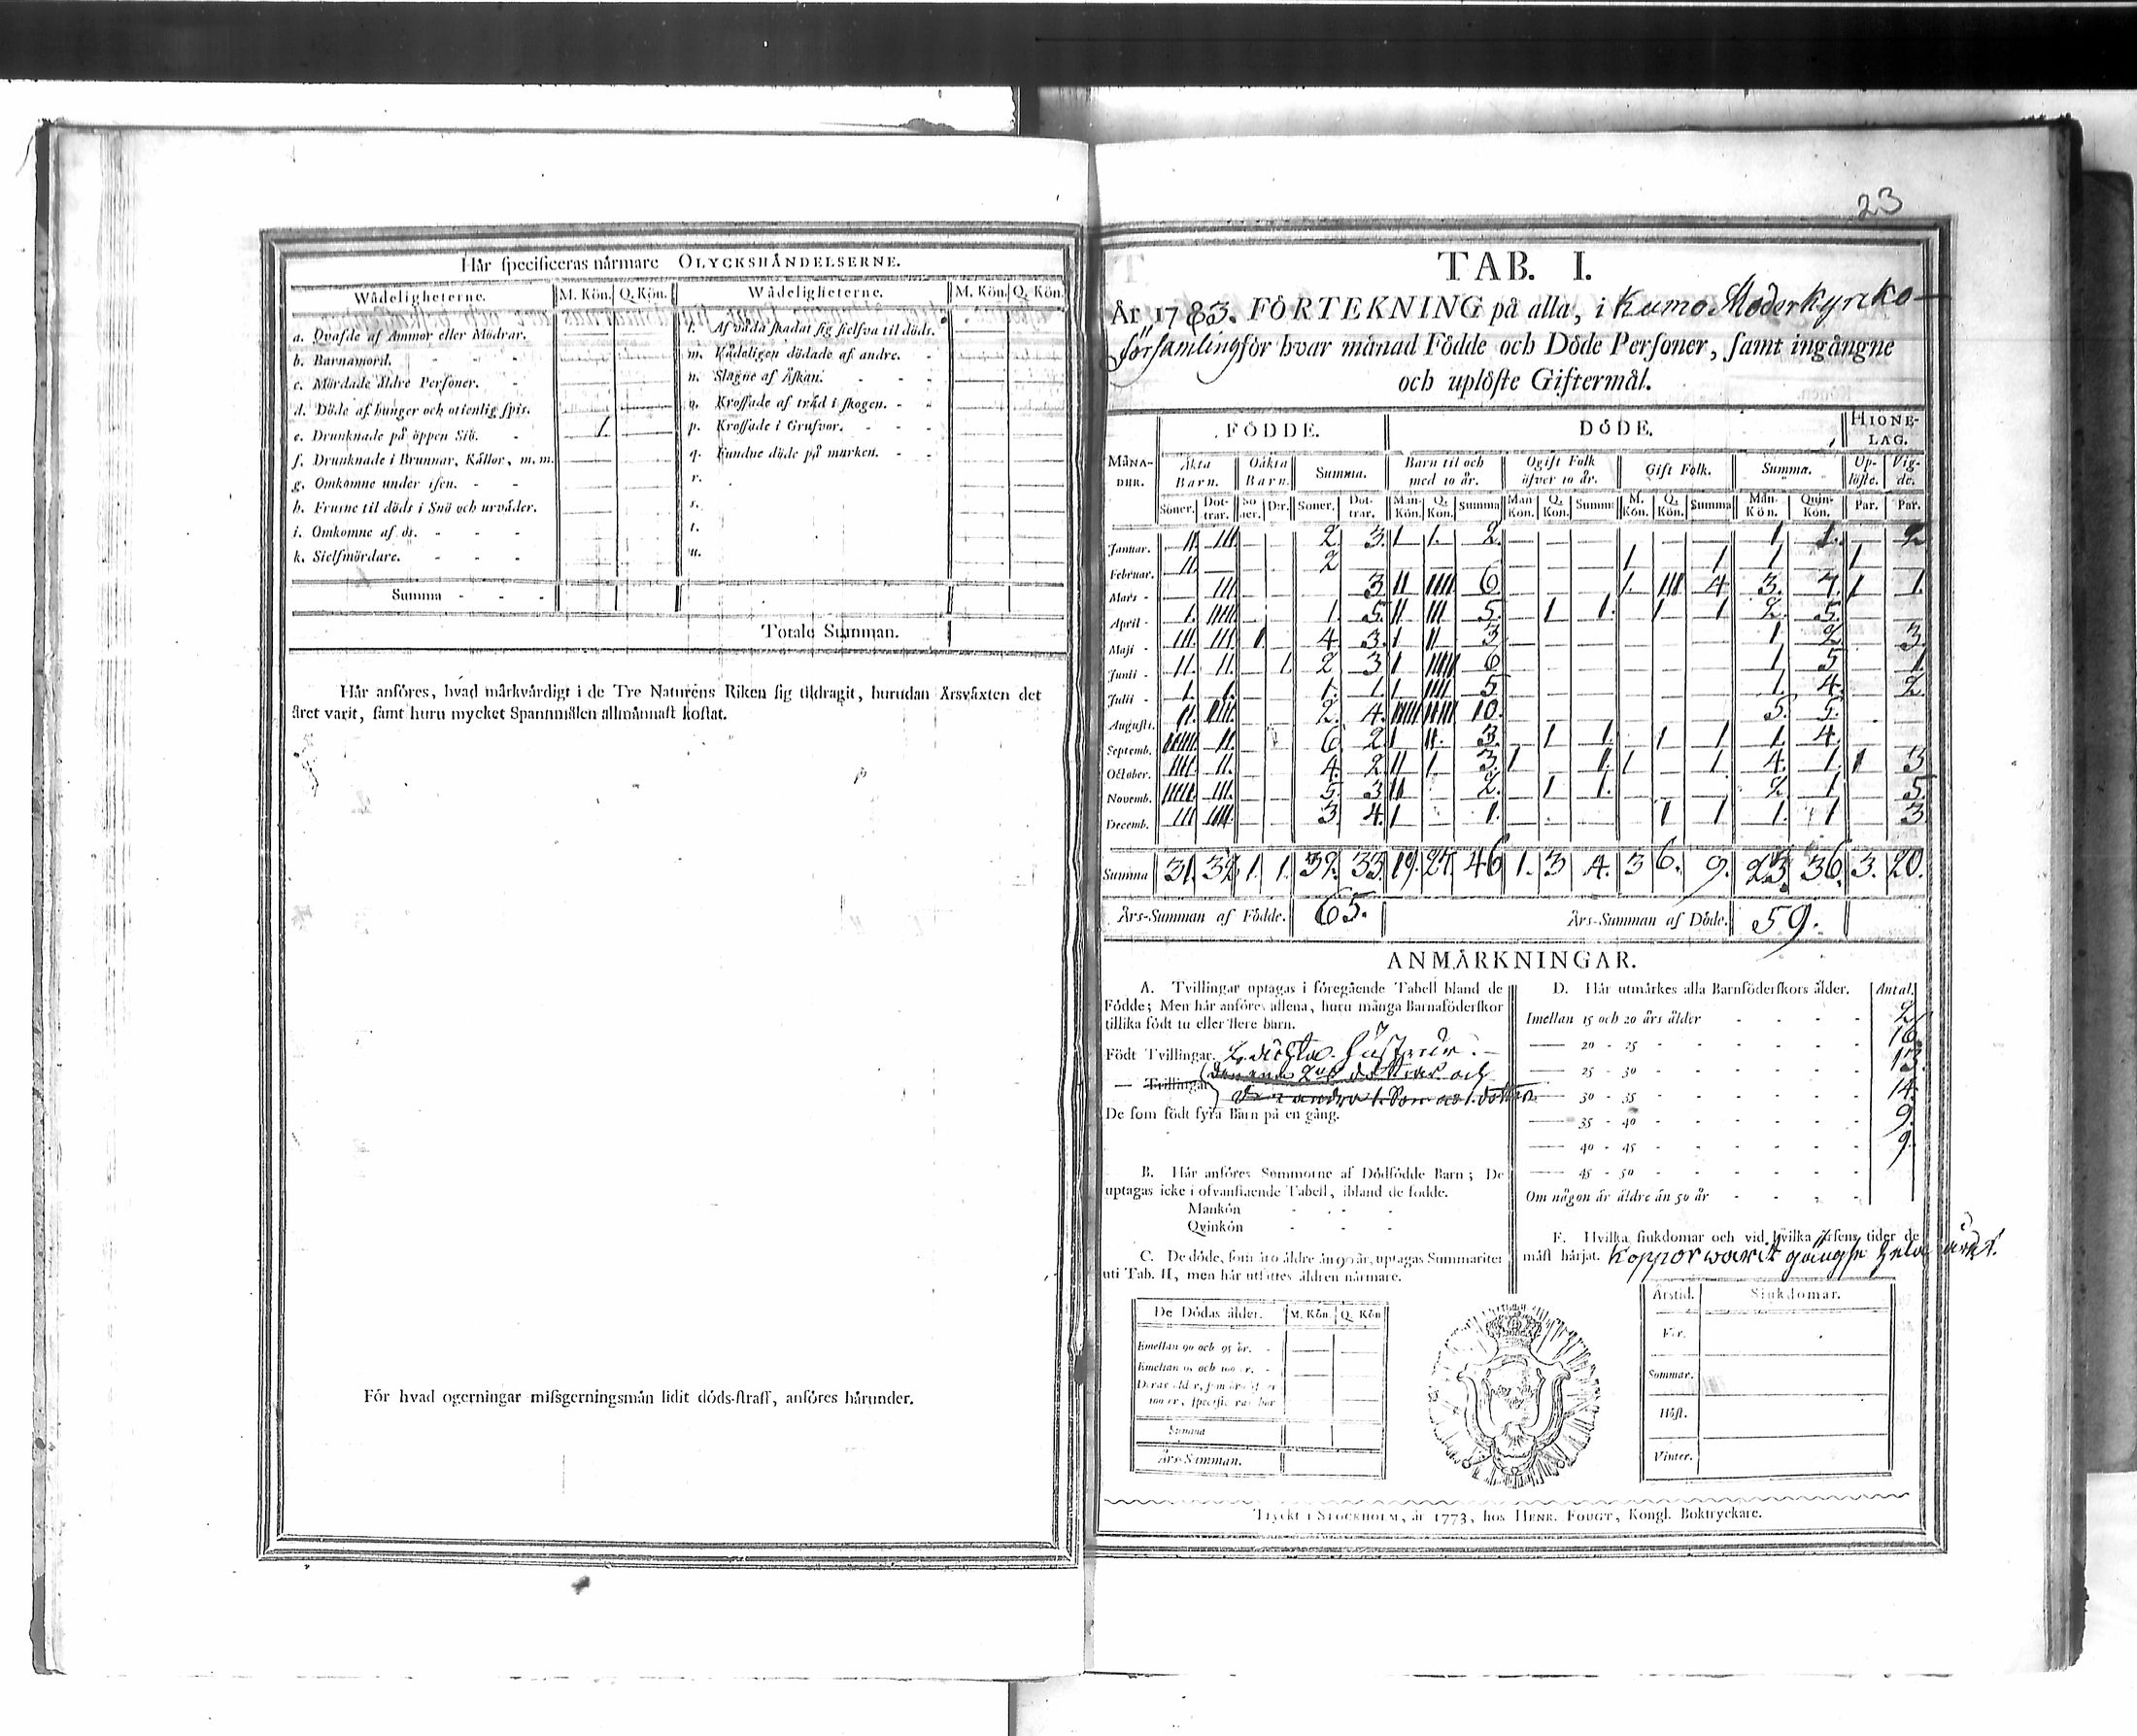 Hår specificeras nårmare OLYCKSHÅNDELSERNE.
Wådeligheterne. M. Kön. Q. Kön. Wådeligheterne. M. Kön. Q. Kön.
a. Qvafde af Ammor eller Mödrar. l. Af våda skadat sig sielfva til döds.
b. Barnamord. - - - m. Wådeligen dödade af andre. -
c. Mördade äldre Personer. - n. Slagne af Åskan. - - -
d. Döde af hunger och otienlig spis. o. Krossade af träd i skogen. - -
e. Drunknade på öppen Siö. - 1. p. Krossade i Grufvor. - - -
f. Drunknade i Brunnar, Källor, m. m. q. Fundne döde på marken. - -
g. Omkomne under isen. - - r.
h. Frusne til döds i Snö och urväder. s.
i. Omkomne af ös. - - - t.
k. Sielfmördare. - - - u.
Summa - - -
Totale Summan.
Hår anföres, hvad mårkvårdigt i de Tre Naturens Riken sig tildragit, hurudan Årsvåxten det
året varit, samt huru mycket Spannmålen allmånnast kostat.
För hvad ogerningar missgerningsmån lidit döds-straff, anföres hårunder.
23
TAB. I.
År 1783. FÖRTEKNING på alla, i Kumo Moderkyrcko-
församling för hvar månad Födde och Döde Personer, samt ingångne
och uplöste Giftermål.
FÖDDE. DÖDE. HIONELAG.
MÅNADER. Äkta Barn. Oäkta Barn. Summa. Barn til och med 10 år. Ogift Folk öfver 10 år. Gift Folk. Summa. Uplöste. Vigde.
Söner. Dottrar. Söner. D:r. Söner. Dottrar. Man Kön. Q. Kön. Summa Man Kön. Q. Kön. Summa M. Kön. Q. Kön. Summa Man. Kön. Quin. Kön. Par. Par.
Januar. II. III. — — 2. 3. I I. 2. — — — — — — 1 1. — 2
Februar. II. — — — 2 — — — — — — — 1 — 1 1 — 1 —
Mars - — III. — — — 3 II IIII 6. — — — 1. III 4 3. 7. 1 1.
April - 1. IIIII. — — 1. 5. II III 5. — 1 1. — 1 1 2. 5. — —
Maji - III. III. 1. — 4. 3. I II 3. — — — — — — 1 2. — 3.
Junii - II. II. — 1. 2 3 I IIIII 6 — — — — — — 1 5 — 1.
Julii - 1. 1. — — 1. 1. I. IIII 5. — — — — — — 1. 4. — 2.
Augusti. II. IIII. — — 2. 4. IIIII IIIII 10. — — — — — — 5. 5. — —
Septemb. IIIIII. II. — — 6. 2. I II. 3. — 1 1. — 1 1 1. 4. — —
October. IIII. II. — — 4. 2. II 1. 3. 1 — 1. 1 — 1. 4. 1. 1 3
Novemb. IIIII. III. — — 5. 3 II — 2. — 1 1. — — — 2 1 — 5
Decemb. III IIII. — — 3. 4. I — 1. — — — — 1 1 1. 1 — 3
Summa 31. 32. 1. 1. 32. 33. 19. 27. 46 1. 3 4. 3 6. 9. 23. 36. 3. 20.
Års-Summan af Födde. 65. Års-Summan af Döde. 59.
ANMÅRKNINGAR.
A. Tvillingar uptagas i föregående Tabell bland de
Födde; Men hår anföres allena, huru många Barnaföderskor
tillika födt tu eller flere barn.
Födt Tvillingar. 2. ächta Hustrur. —
— Trillingar den ena 2ne döttrar och
den andra 1. Son och 1. dotter
De som födt fyra Barn på en gång.
B. Hår anföres Summorne af Dödfödde Barn; De
uptagas icke i ofvanstående Tabell, ibland de födde.
Mankön - - -
Qvinkön - - -
C. De döde, som åro åldre ån 90 år, uptagas Summariter
uti Tab. II, men hår utsåttes åldren nårmare.
De Dödas ålder. M. Kön. Q. Kön
Emellan 90 och 95 år. -
Emellan 95 och 100 år. -
Summa
Års-Summan.
D. Hår utmårkes alla Barnföderskors ålder. Antal.
Imellan 15 och 20 års ålder - - - - 2
— 20 - 25 - - - - - 16.
— 25 - 30 - - - - - 13.
— 30 - 35 - - - - - 14.
— 35 - 40 - - - - - 9.
— 40 - 45 - - - - - 9.
— 45 - 50 - - - - -
Om någon är äldre än 50 år - - - -
E. Hvilka siukdomar och vid hvilka årsens tider de
måst hårjat. Koppor warit gängse hela året.
Årstid. Siukdomar.
Vår.
Sommar.
Höst.
Vinter.
Tryckt i STOCKHOLM, år 1773, hos HENR. FOUGT, Kongl. Boktryckare.